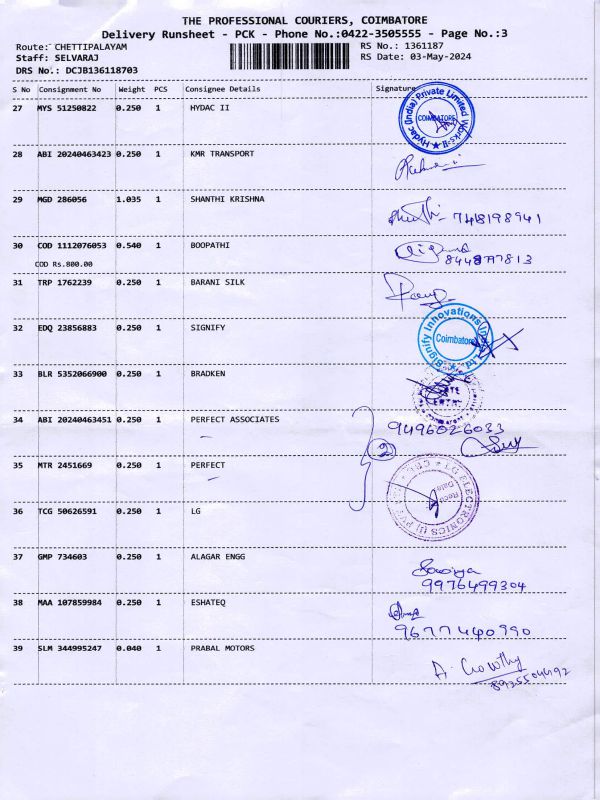 THE PROFESSIONAL COURIERS, COIMBATORE
Delivery Runsheet - PCK - Phone No.:0422-3505555 - Page No.:3
Route: CHETTIPALAYAM
RS No.: 1361187
Staff: SELVARAJ
RS Date: 03-May-2024
DRS No.: DCJB136118703
S No Consignment No Weight PCS Consignee Details Signature
27 MYS 51250822 0.250 1 HYDAC II
Hydac (India) Private Limited Works-II ★ COIMBATORE
28 ABI 20240463423 0.250 1 KMR TRANSPORT
29 MGD 286056 1.035 1 SHANTHI KRISHNA
7418198941
30 COD 1112076053 0.540 1 BOOPATHI
COD Rs.800.00
31 TRP 1762239 0.250 1 BARANI SILK
32 EDQ 23856883 0.250 1 SIGNIFY
Signify Innovations Coimbatore
33 BLR 5352066900 0.250 1 BRADKEN
34 ABI 20240463451 0.250 1 PERFECT ASSOCIATES
9496026033
2
35 MTR 2451669 0.250 1 PERFECT
36 TCG 50626591 0.250 1 LG
LG ELECTRONICS
37 GMP 734603 0.250 1 ALAGAR ENGG
9976499304
38 MAA 107859984 0.250 1 ESHATEQ
9677440990
39 SLM 344995247 0.040 1 PRABAL MOTORS